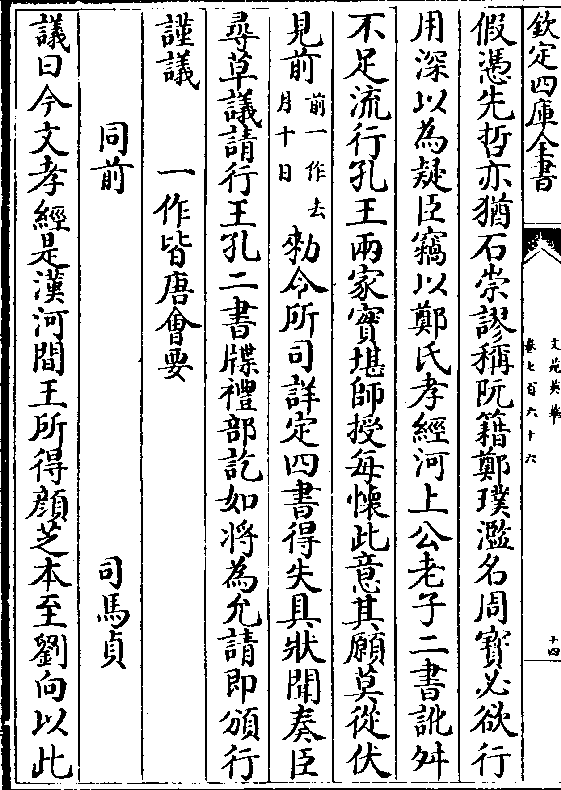 欽定四庫全書
文苑英華
卷七百六十六
十四
假憑先哲亦猶石崇謬稱阮籍鄭璞濫名周寳必欲行
用深以為疑臣竊以鄭氏孝經河上公老子二書訛舛
不足流行孔王兩家實堪師授每懷此意其願莫從伏
見前前一作去月十日勑令所司詳定四書得失具狀聞奏臣
尋草議請行王孔二書牒禮部訖如將為允請即頒行
謹議 一作皆唐會要
同前 司馬貞
議曰今文孝經是漢河間王所得顔芝本至劉向以此